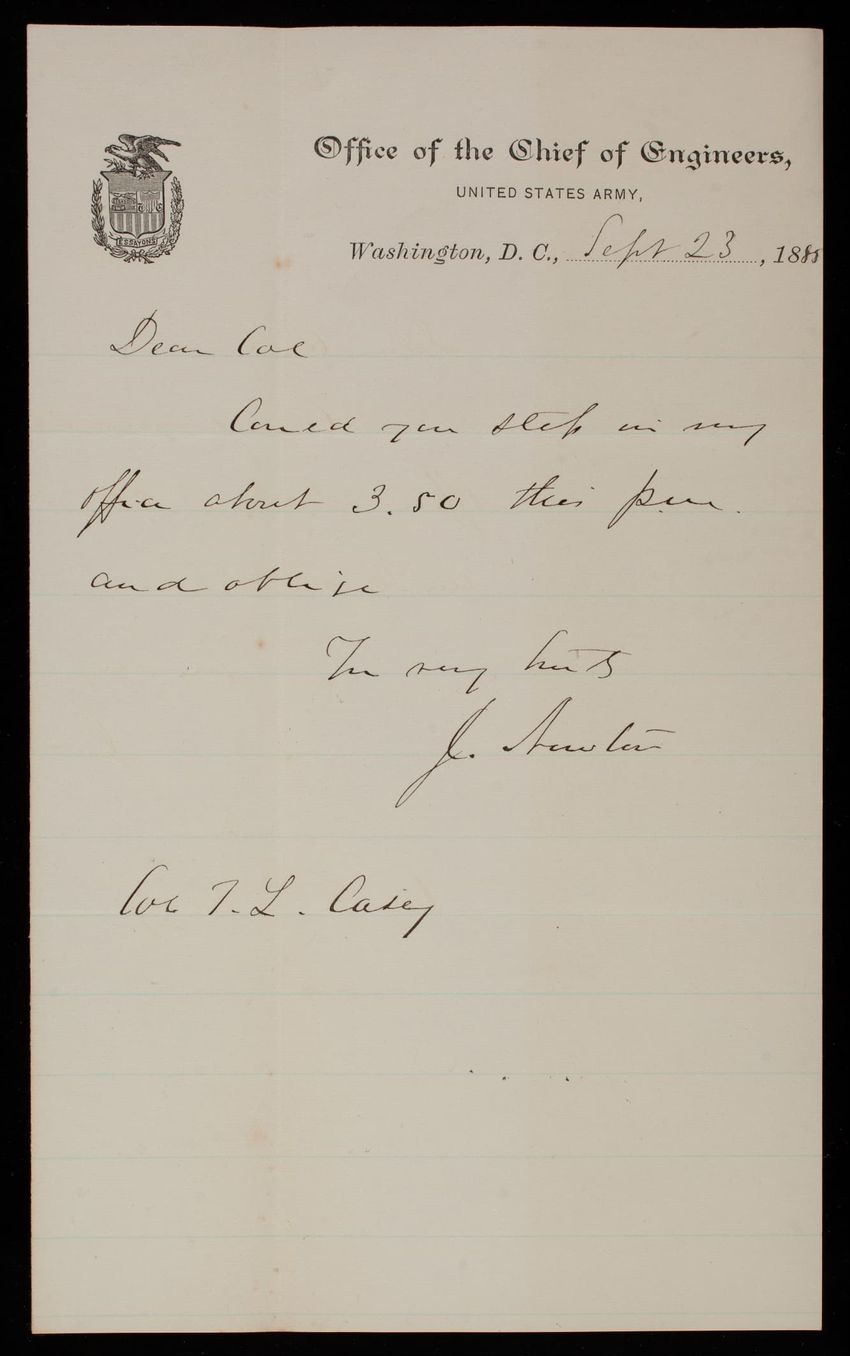 ESSAYONS
Office of the Chief of Engineers,
UNITED STATES ARMY,
Washington, D. C., Sept 23, 1885
Dear Col
Could you step in my
office about 3.50 this p.m.
and oblige
Yrs very truly
J. Newton
Col T. L. Casey